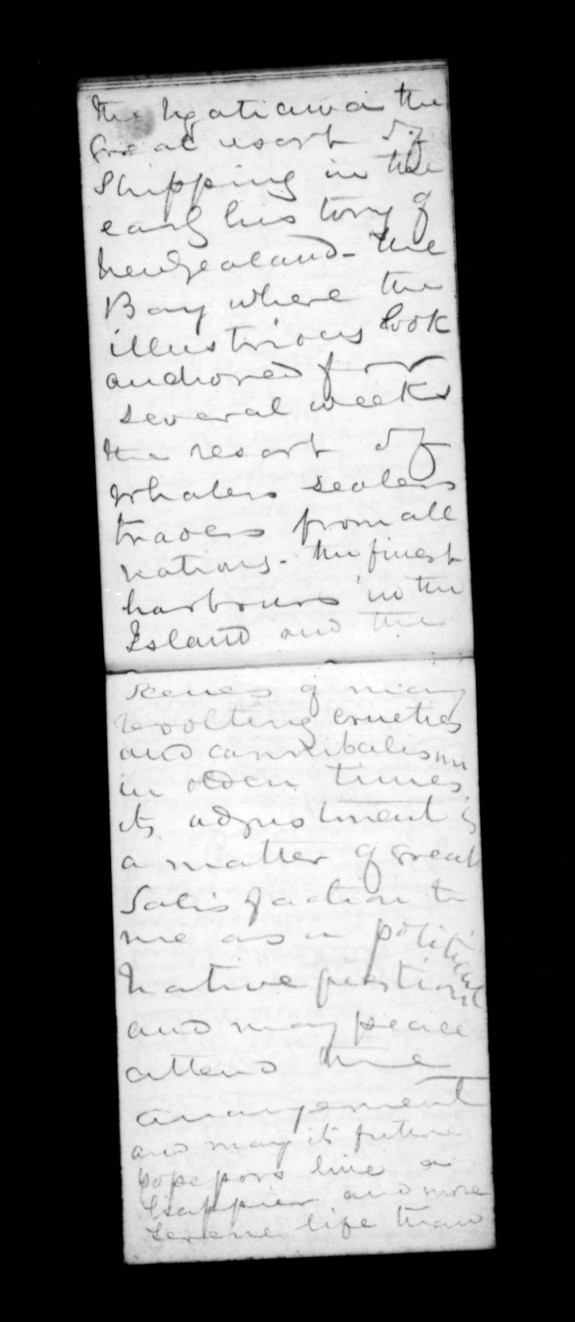 the Ngatiawa is the
Great resort of
Shipping in the
early history of
New Zealand - the
Bay where the
illustrious Cook
anchored for
several weeks
the resort of
Whalers sealers
traders from all
nations - the finest
harbours in the
Island and the
scenes of many
revolting cruelties
and cannibalism
in olden times
its adjustment is
a matter of great
Satisfaction to
me as a political
Native question
and may peace
attend the
arrangement
and may its future
live a
happier and more
serene life than